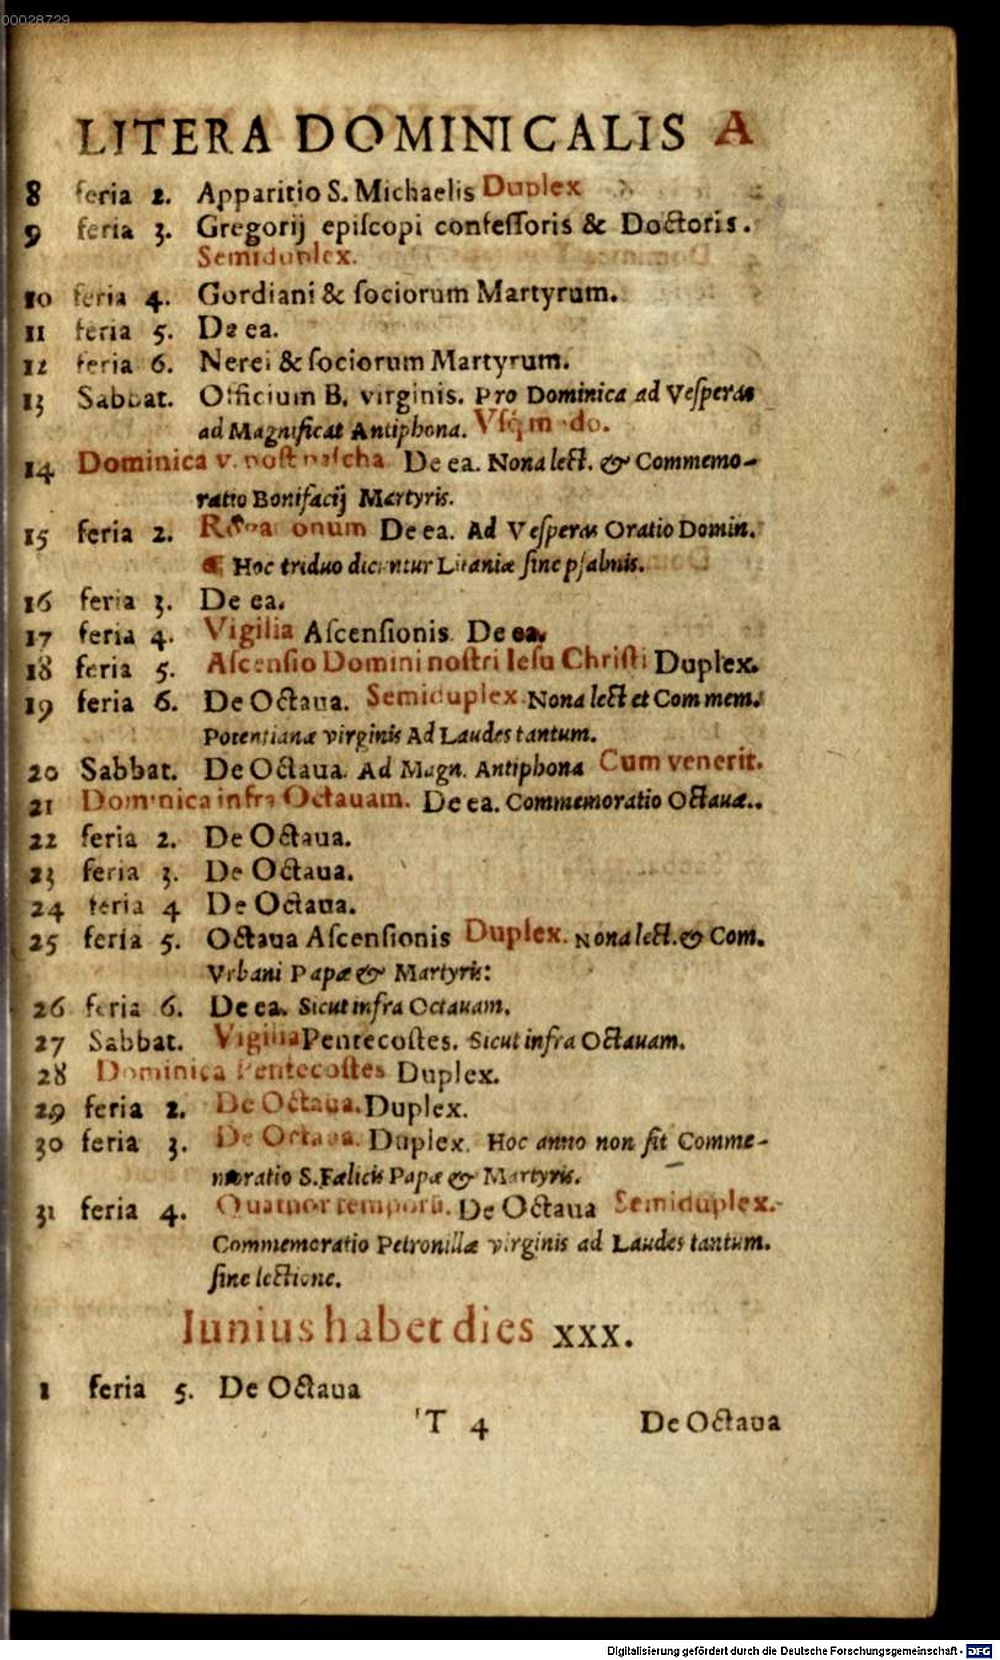 00028729
LITERA DOMINICALIS A
8 feria 2. Apparitio S. Michaelis Duplex
9 feria 3. Gregorij epiſcopi confeſſoris & Doctoris.
Semiduplex.
10 feria 4. Gordiani & ſociorum Martyrum.
11 feria 5. De ea.
12 feria 6. Nerei & ſociorum Martyrum.
13 Sabbat. Officium B. virginis. Pro Dominica ad Veſperas
ad Magnificat Antiphona. Vſq; m do.
14 Dominica v. poſt paſcha De ea. Nona lect. & Commemo-
ratio Bonifacij Martyris.
15 feria 2. Rogationum De ea. Ad Veſperas Oratio Domin.
¶ Hoc triduo dicuntur Litaniæ ſine pſalmis.
16 feria 3. De ea.
17 feria 4. Vigilia Aſcenſionis De ea.
18 feria 5. Aſcenſio Domini noſtri Ieſu Chriſti Duplex.
19 feria 6. De Octaua. Semiduplex Nona lect et Commem.
Potentianæ virginis Ad Laudes tantum.
20 Sabbat. De Octaua. Ad Magn. Antiphona Cum venerit.
21 Dominica infra Octauam. De ea. Commemoratio Octauæ..
22 feria 2. De Octaua.
23 feria 3. De Octaua.
24 feria 4 De Octaua.
25 feria 5. Octaua Aſcenſionis Duplex. Nona lect. & Com.
Vrbani Papæ & Martyris:
26 feria 6. De ea. Sicut infra Octauam.
27 Sabbat. Vigilia Pentecoſtes. Sicut infra Octauam.
28 Dominica Pentecoſtes Duplex.
29 feria 2. De Octaua. Duplex.
30 feria 3. De Octaua. Duplex. Hoc anno non fit Comme-
moratio S. Fælicis Papæ & Martyris.
31 feria 4. Quatuor temporū. De Octaua Semiduplex.
Commemoratio Petronillæ virginis ad Laudes tantum.
ſine lectione.
Iunius habet dies xxx.
1 feria 5. De Octaua
T 4 De Octaua
Digitalisierung gefördert durch die Deutsche Forschungsgemeinschaft - DFG